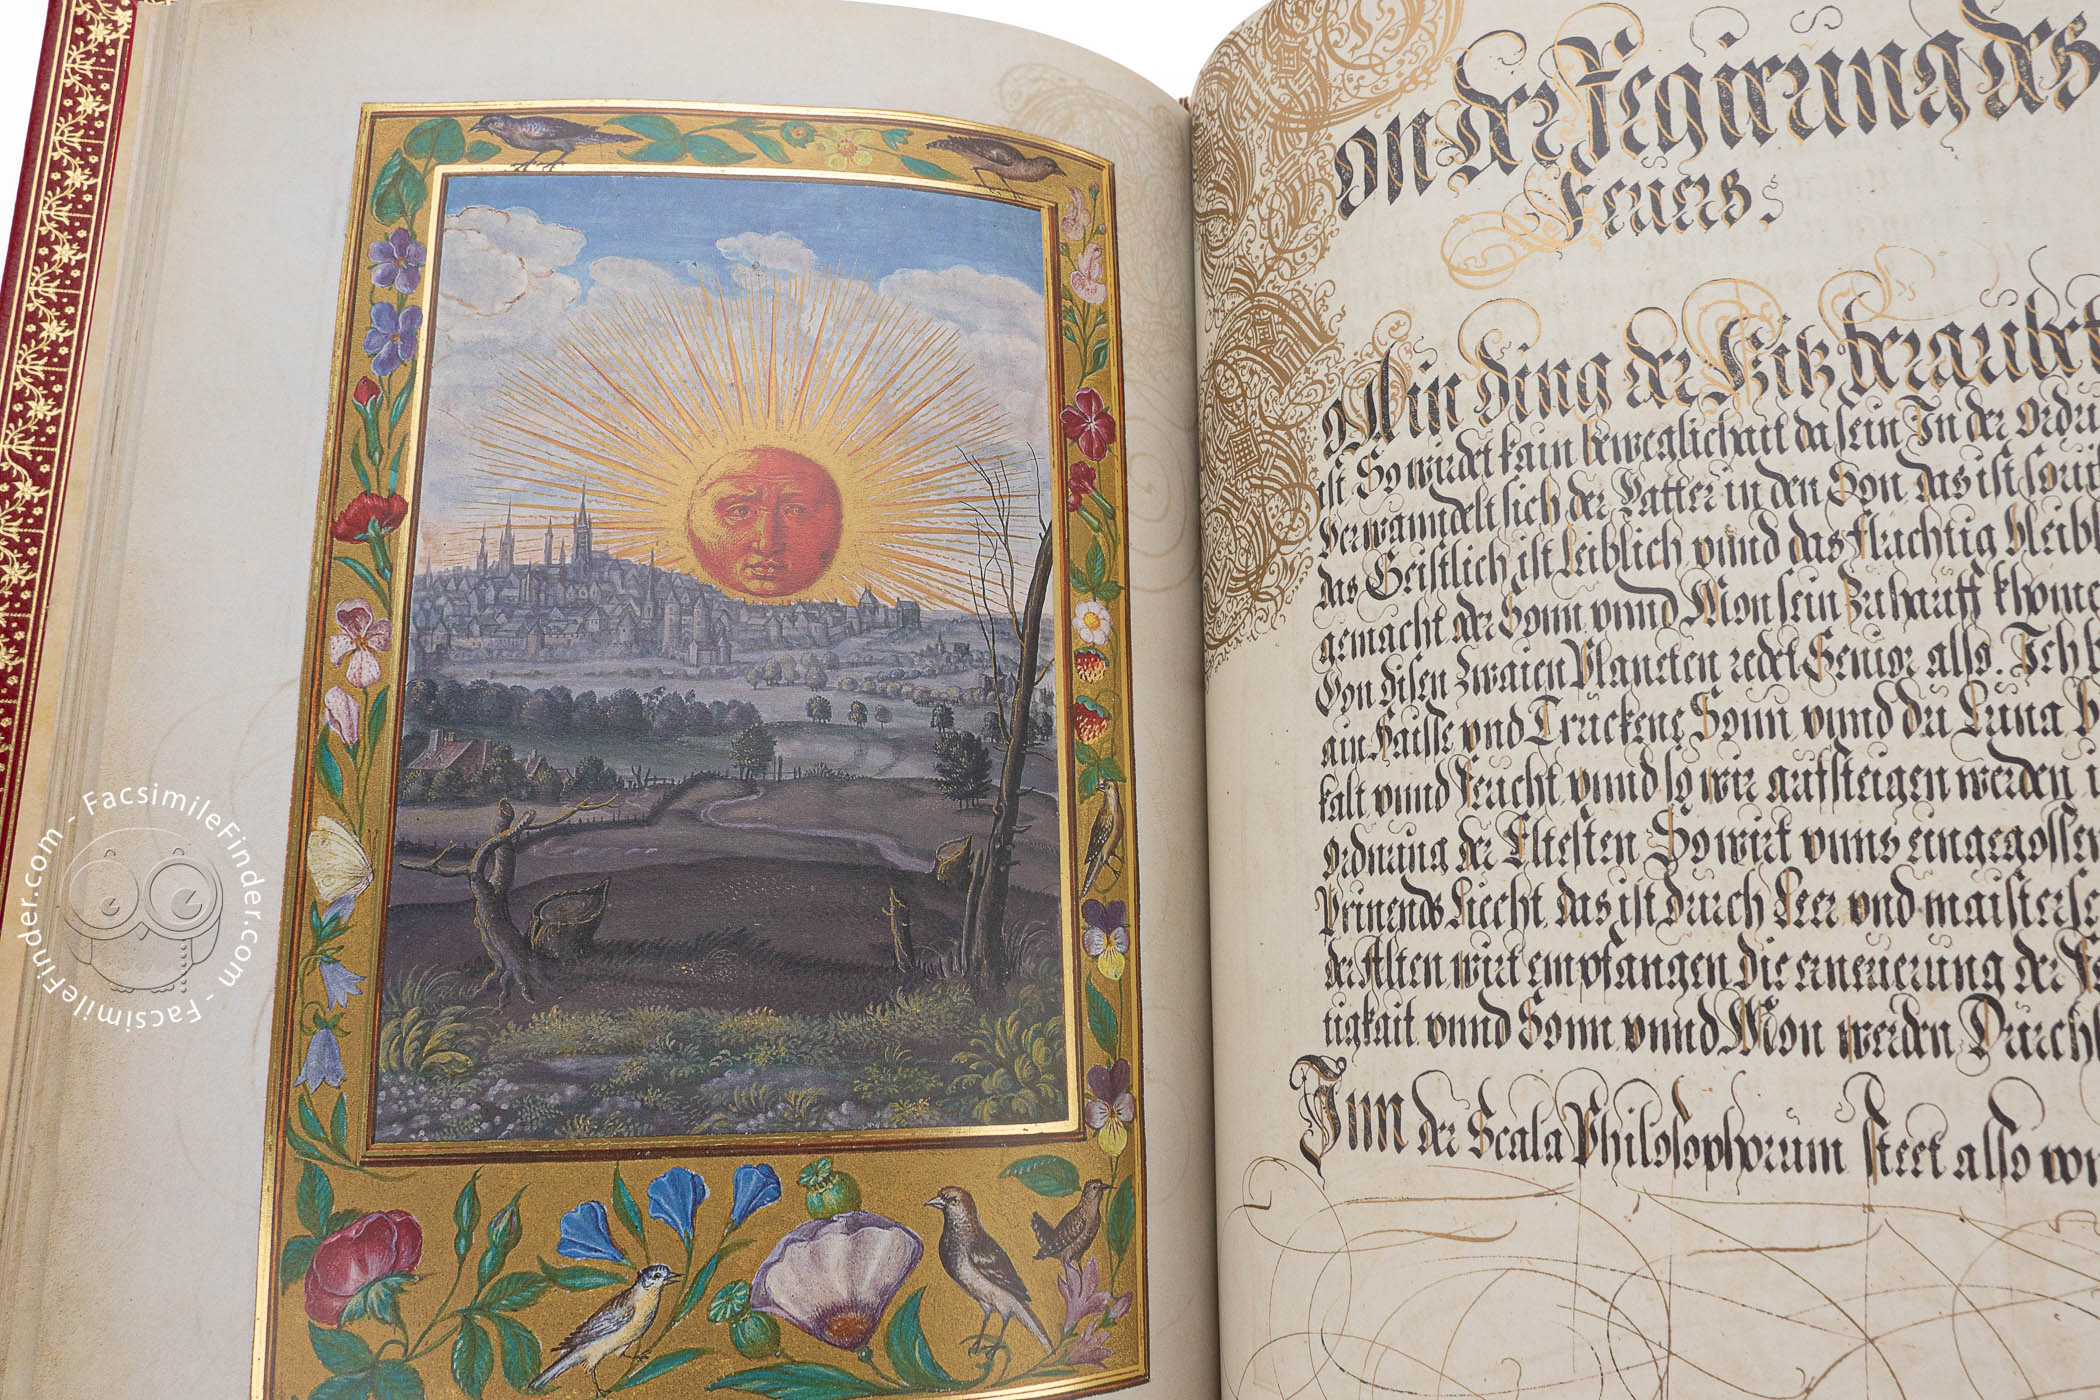 Von der Regirung des
Feuers.
Ain ding der Hitz beraubet
ist So wirdet kain beweglichait da sein In der ordnu
verwanndelt sich der Vatter in den Son, das ist souil
das Geistlich ist Leiblich vnnd das fluchtig bleibt
gemacht der Sonn vnnd Mon sein zuhauff khome
Von disen zwaien Planeten redet Senior also. Ich b
ain haisse vnd Truckene Sonn vnnd du Luna b
kalt vnnd feucht vnnd so wir aufsteigen werden i
ordnung der Eltesten So wirt vnns eingegossen
Prinends Liecht das ist durch Leer vnd maisterse
der Alten wirt empfangen die erneuerung der Fe
tigkait vnnd Sonn vnnd Mon werden Durch
Inn der Scala Philosophorum steet also vo
FacsimileFinder.com - FacsimileFinder.com -